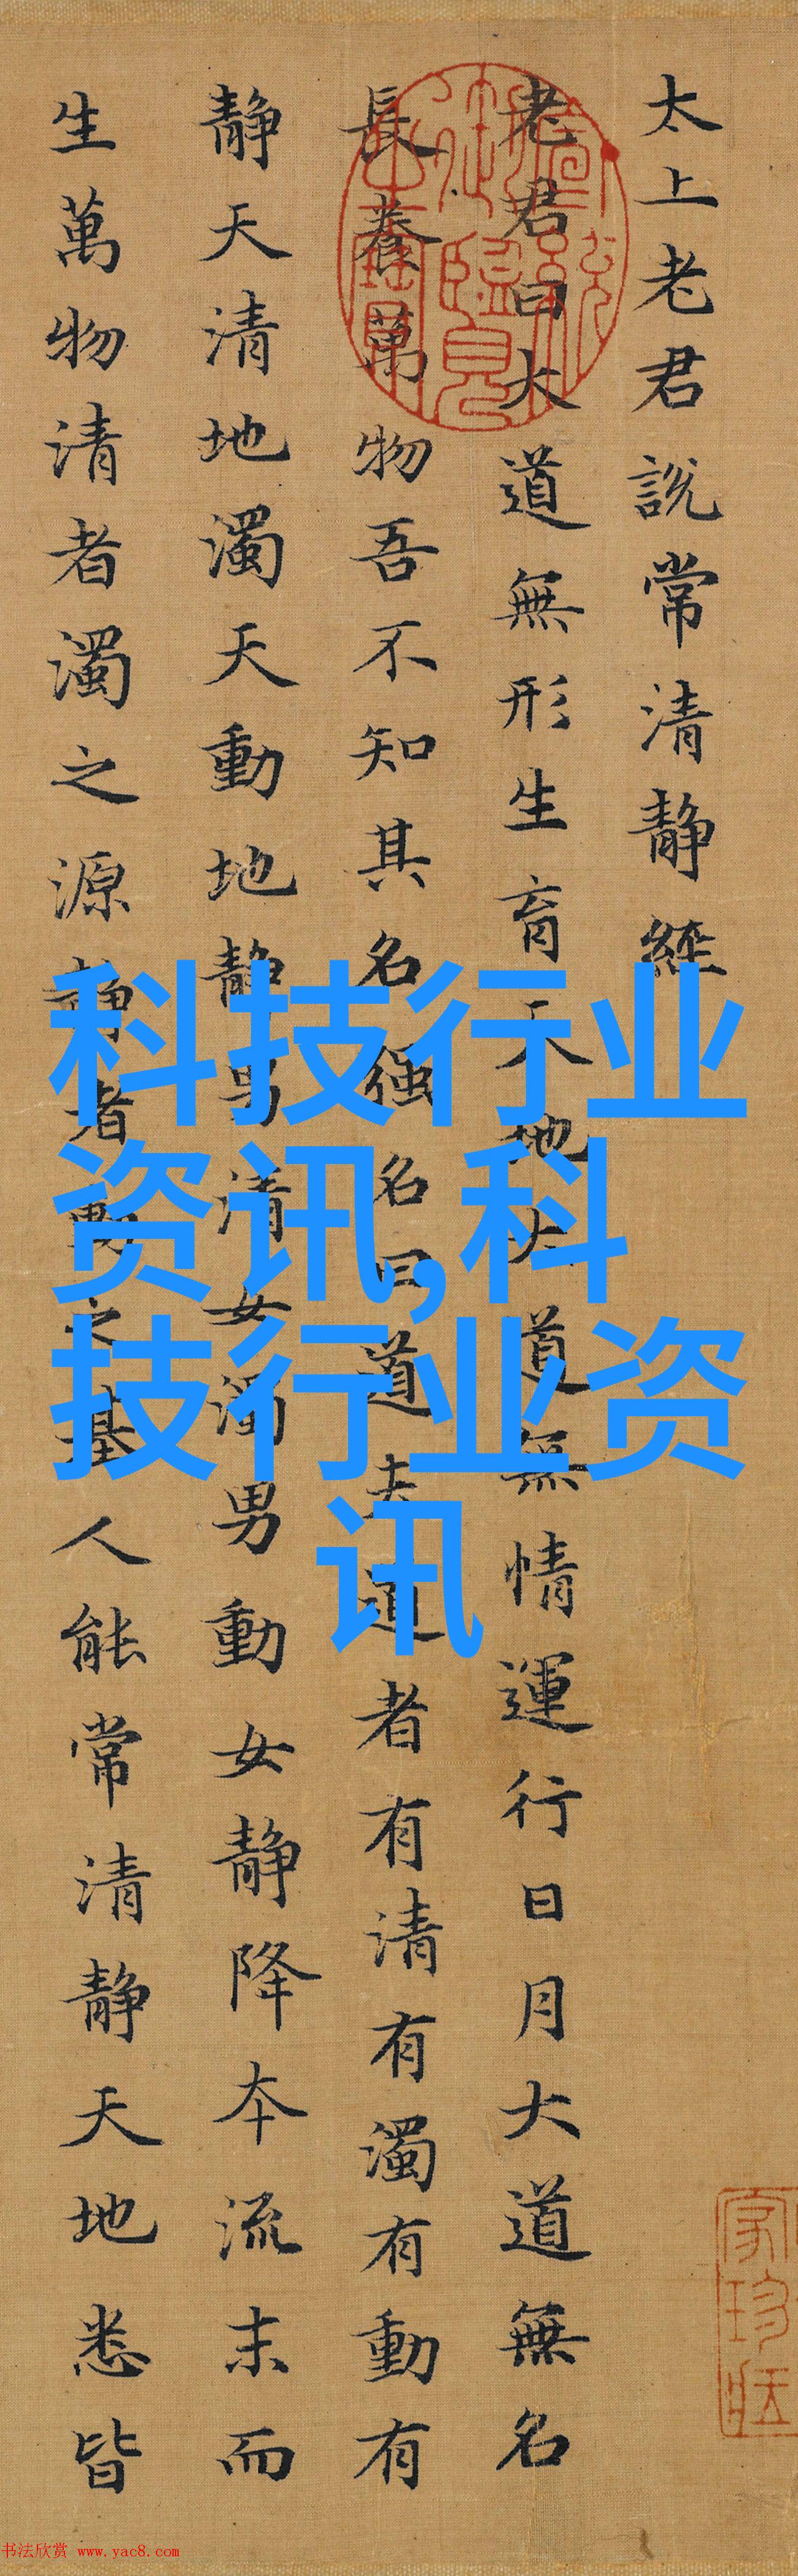 太上老君説常清静經
老君曰大道無形生育天地大道無情運行日月大道無名
長養萬物吾不知其名强名曰道夫道者有清有濁有動有
静天清地濁天動地静男清女濁男動女静降本流末而
生萬物清者濁之源静者動之基人能常清静天地悉皆
科技行业
资讯,科
技行业资
讯
书法欣赏 www.yac8.com